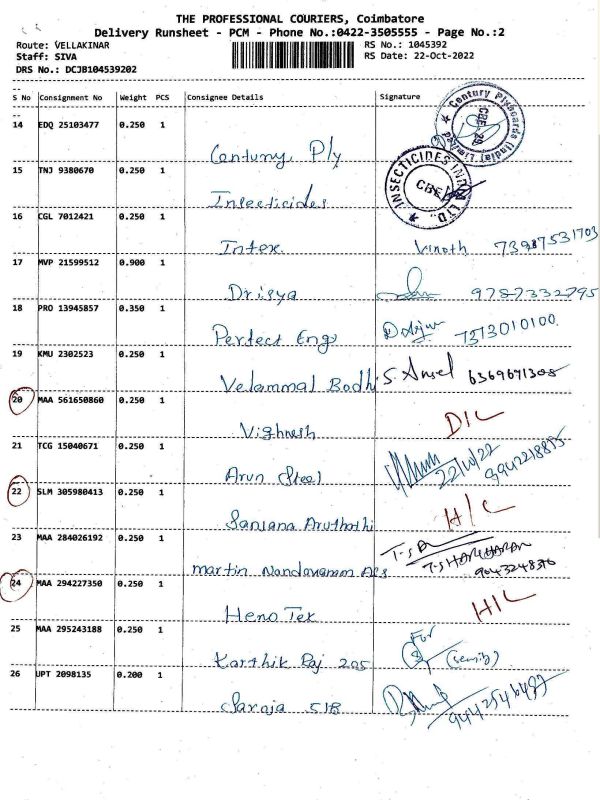 THE PROFESSIONAL COURIERS, Coimbatore
Delivery Runsheet - PCM - Phone No.:0422-3505555 - Page No.:2
Route: VELLAKINAR RS No.: 1045392
Staff: SIVA RS Date: 22-Oct-2022
DRS No.: DCJB104539202
S No Consignment No Weight PCS Consignee Details Signature
14 EDQ 25103477 0.250 1
Century Ply
Century Plyboards (India) Limited CBE
15 TNJ 9380670 0.250 1
Insecticides
INSECTICIDES INDIA LTD. CBE
16 CGL 7012421 0.250 1
Intex Vinoth 73987531703
17 MVP 21599512 0.900 1
Drisya 9787332795
18 PRO 13945857 0.350 1
Perfect Engg 7373010100
19 KMU 2302523 0.250 1
Velammal Bodhi S. Ansel 6369671305
20 MAA 561650860 0.250 1
Vighnesh D/L
21 TCG 15040671 0.250 1
Arun Steel 22/10/22 9942218815
22 SLM 305980413 0.250 1
Sanjana H/C
23 MAA 284026192 0.250 1
Martin Nandavanam T.S HARIHARAN
24 MAA 294227350 0.250 1
Heno Tex H/L
25 MAA 295243188 0.250 1
Karthik Raj 205 For
26 UPT 2098135 0.200 1
Saroja 51B 9442546487